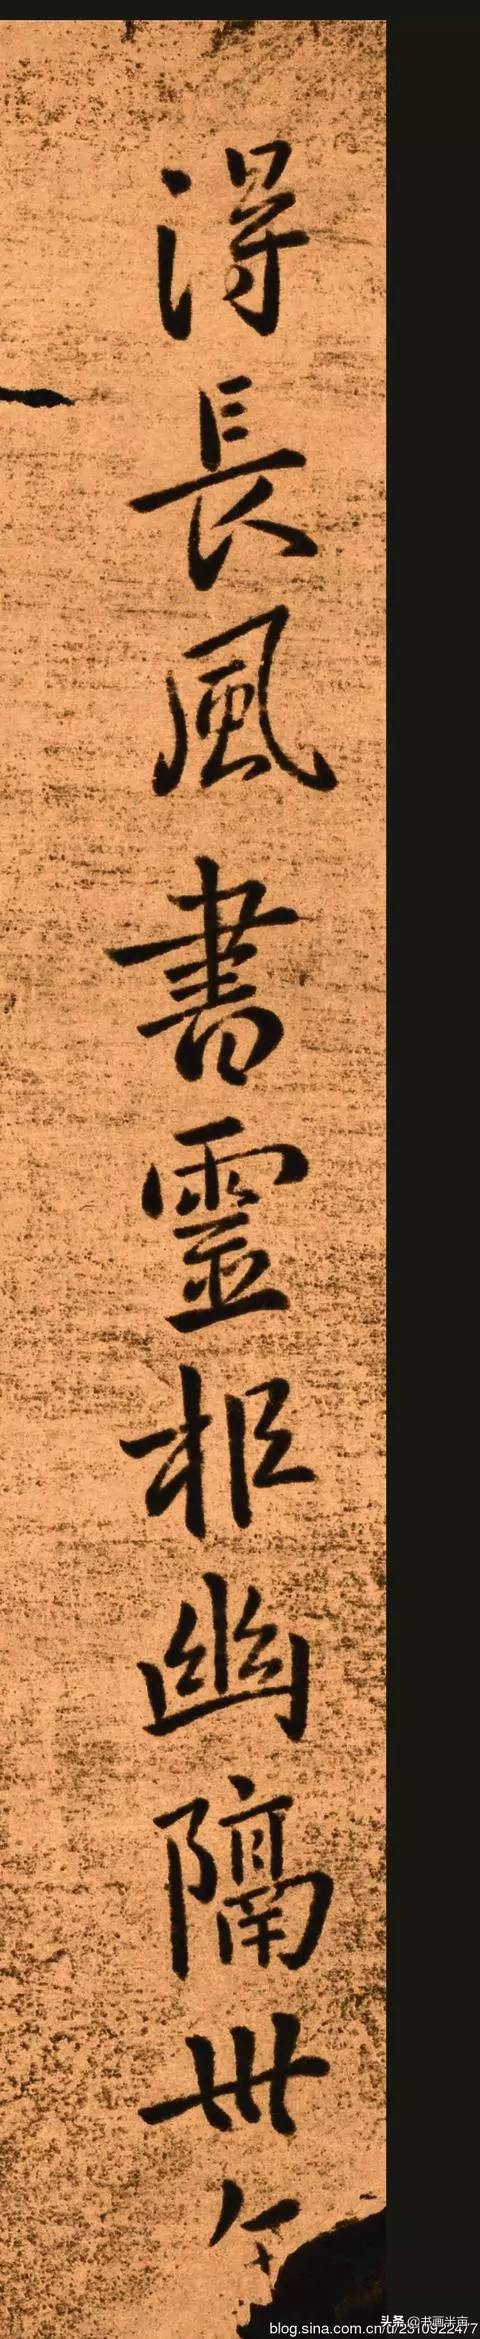 得長風書靈柩幽隔卅
头条 @书画半亩
blog.sina.com.cn/u/2310922477